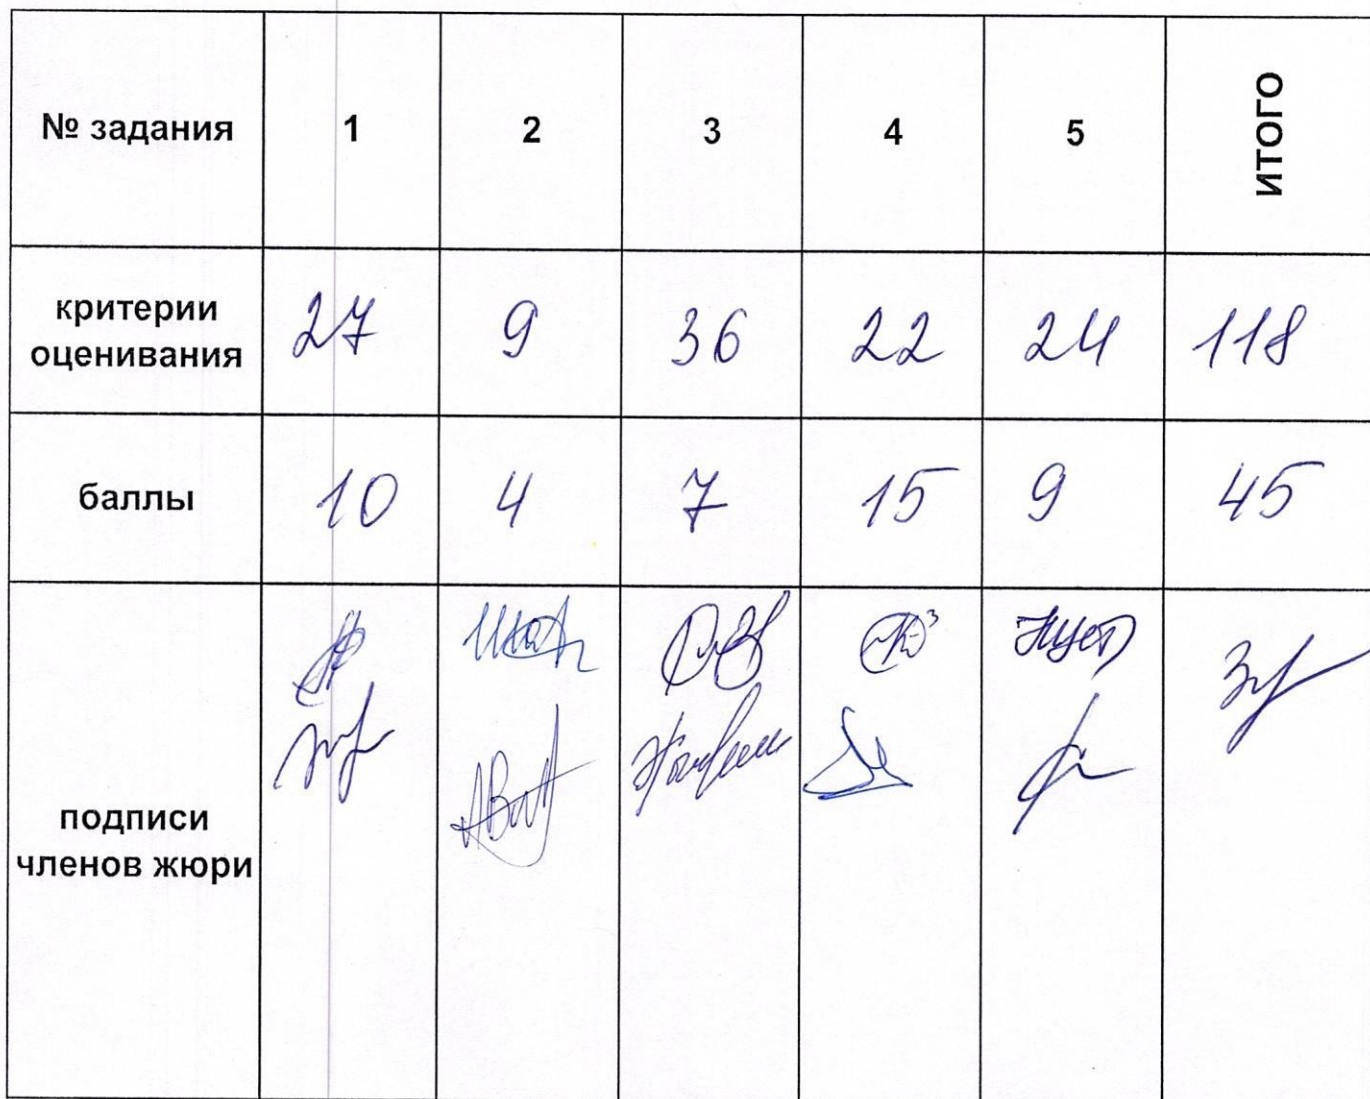 № задания 1 2 3 4 5 ИТОГО
критерии
оценивания 27 9 36 22 24 118
баллы 10 4 7 15 9 45
подписи
членов жюри